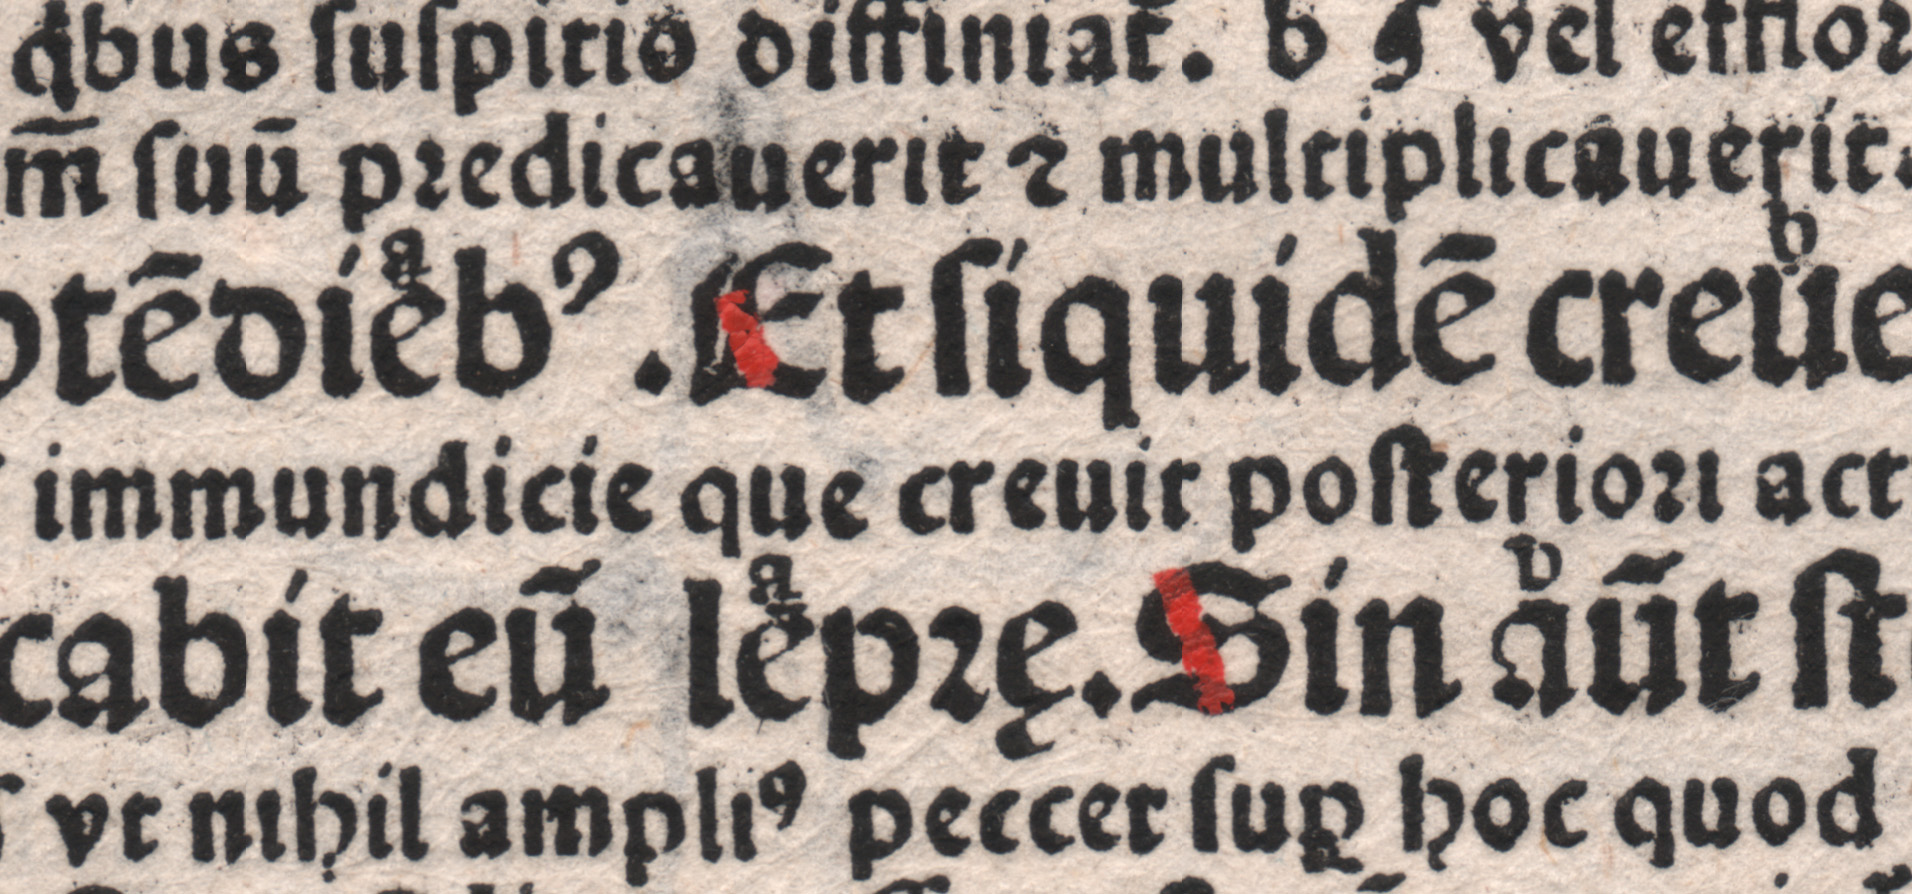 q̇bus ſuſpitiõ diffiniat̄. b ꝯ vel efflor
m̄ ſuū predicauerit ⁊ multiplicauerit.
ptē diebꝰ. Et ſiquidē creue
immundicie que creuit poſteriori act
cabit eū leprę. Sin aūt ſt
vt nihil ampliꝰ peccet ſuꝑ hoc quod